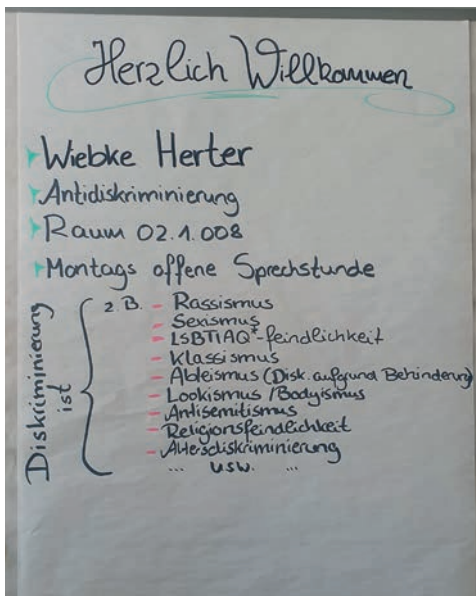 Herzlich Willkommen
Wiebke Herter
Antidiskriminierung
Raum 02.1.008
Montags offene Sprechstunde
Diskriminierung
ist
z. B. - Rassismus
- Sexismus
- LSBTIAQ*-feindlichkeit
- Klassismus
- Ableismus (Disk. aufgrund Behinderung)
- Lookismus / Bodyismus
- Antisemitismus
- Religionsfeindlichkeit
- Altersdiskriminierung
... usw. ...